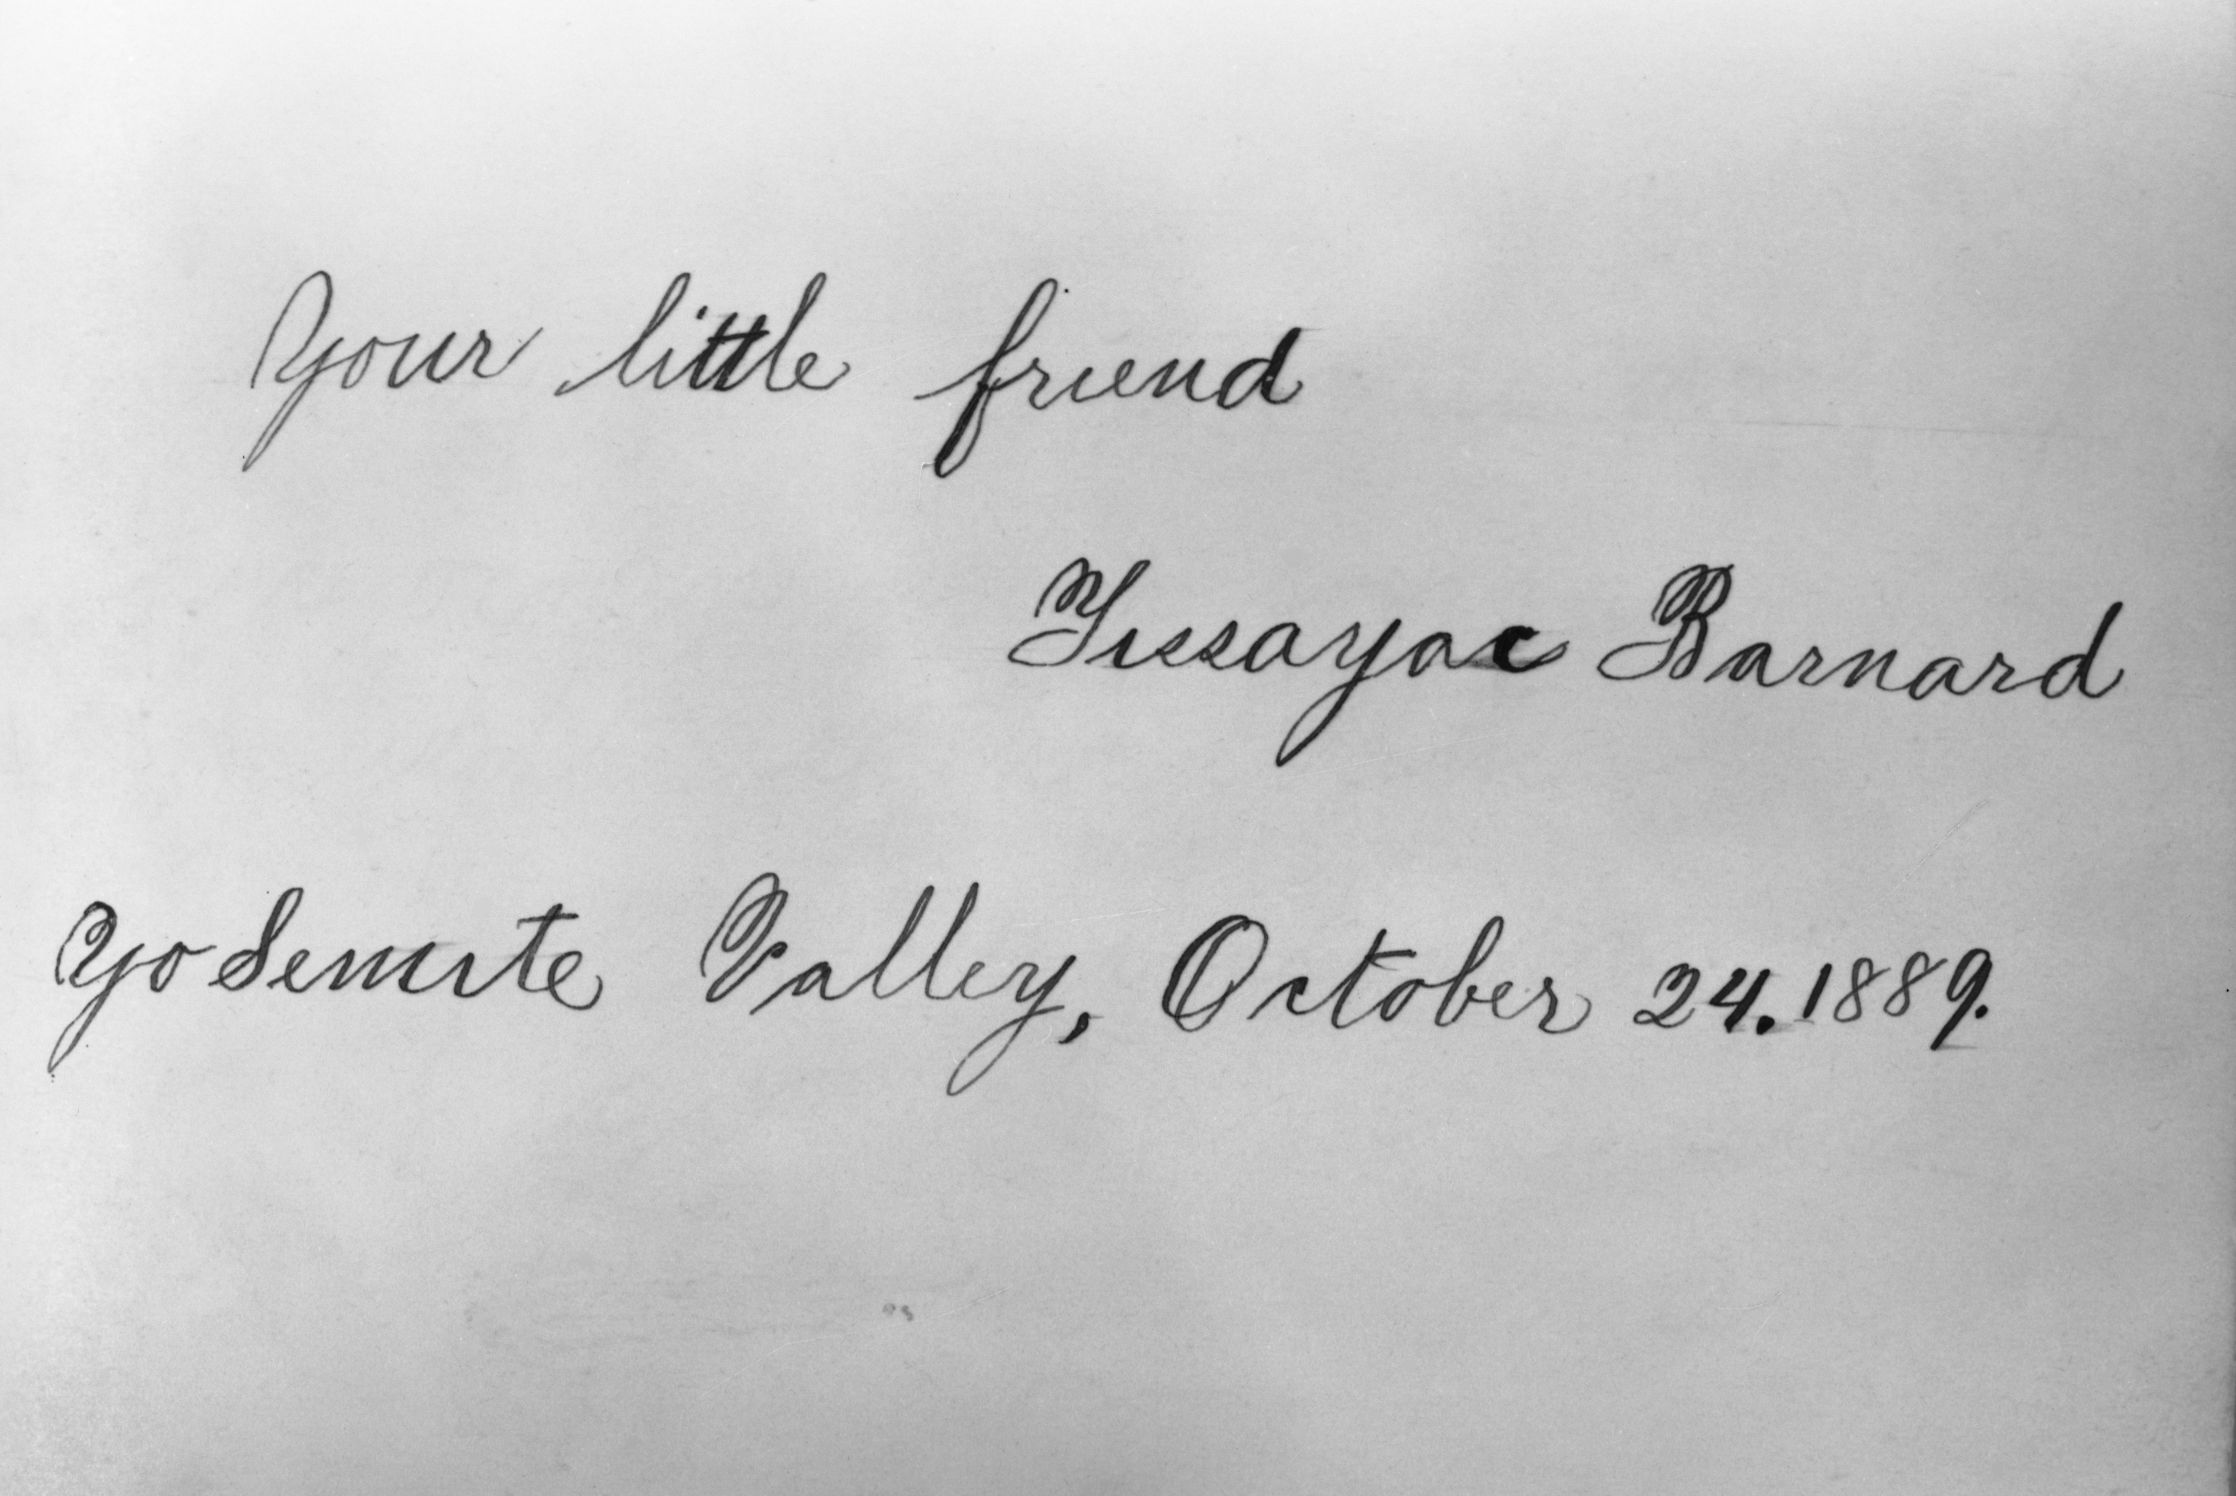 Your little friend
Tissayac Barnard
Yo Semite Valley, October 24. 1889.